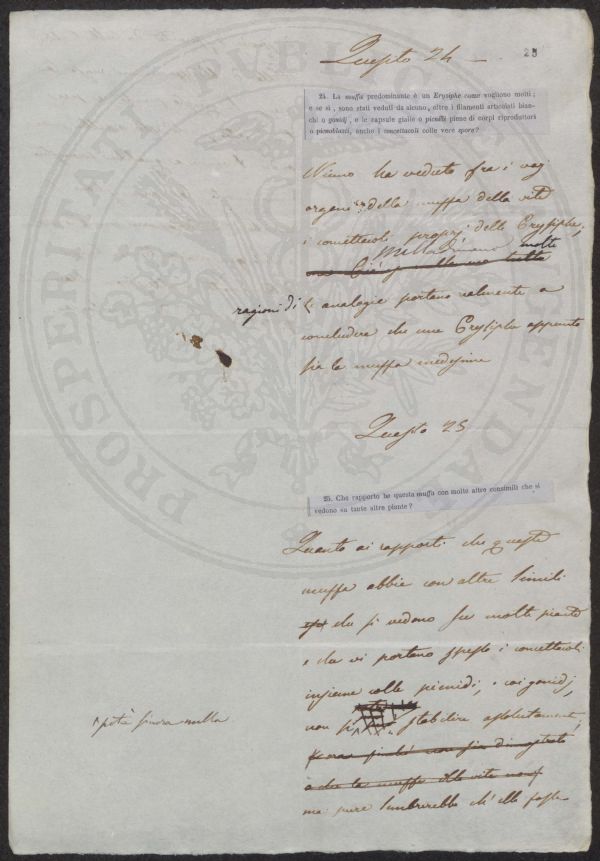 Quesito 24
25
24. La muffa predominante è un Erysiphe come vogliono molti;
e se sì, sono stati veduti da alcuno, oltre i filamenti articolati bian-
chi o gonidj, e le capsule gialle o picnidi piene di corpi riproduttori
o picnoblasti, anche i concettacoli colle vere spore?
Niuno ha veduto fra i varj
organi della muffa della vite
i concettacoli proprj delle Erysiphe,
molte
ragioni di analogia portano realmente a
concludere che una Erysiphe appunto
sia la muffa medesima
Quesito 25
25. Che rapporto ha questa muffa con molte altre consimili che si
vedono su tante altre piante?
Quanto ai rapporti che questa
muffa abbia con altre simili
che si vedono su molte piante
e che vi portano spesso i concettacoli
insieme colle picnidi, e coi gonidj,
non si stabilire assolutamente,
potè finora nulla
ma pure sembrerebbe ch'ella fosse